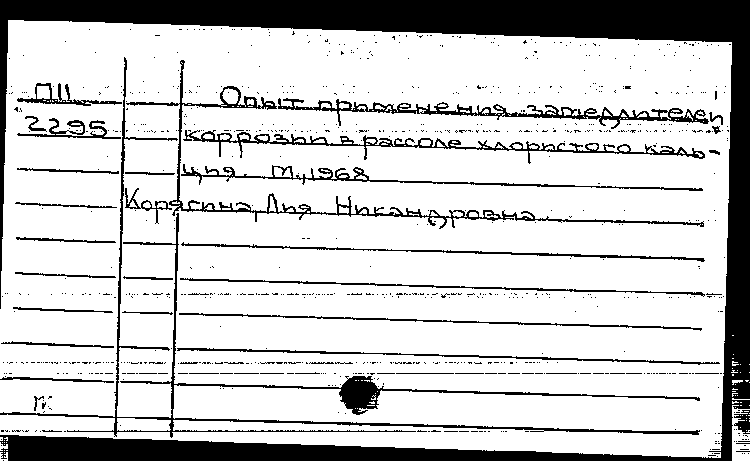 П11 Опыт применения замедлителей
2295 коррозии в рассоле хлористого каль-
ция. М., 1968
Корягина, Лия Никандровна